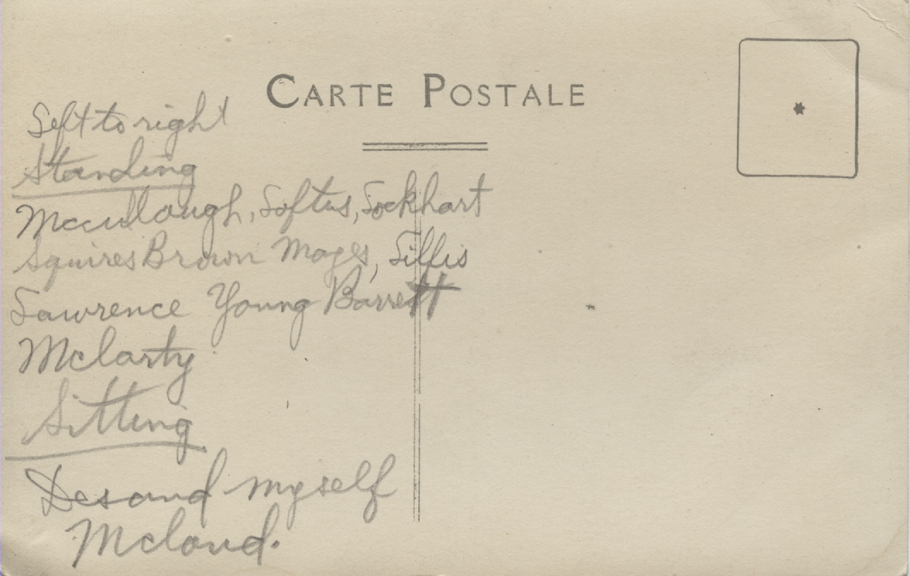 CARTE POSTALE
Left to right
Standing
Mccullough, Loftus, Lockhart
Squires Brown Moges, Lillis
Lawrence Young Barrett
Mclarty
Sitting
myself
Mcloud.